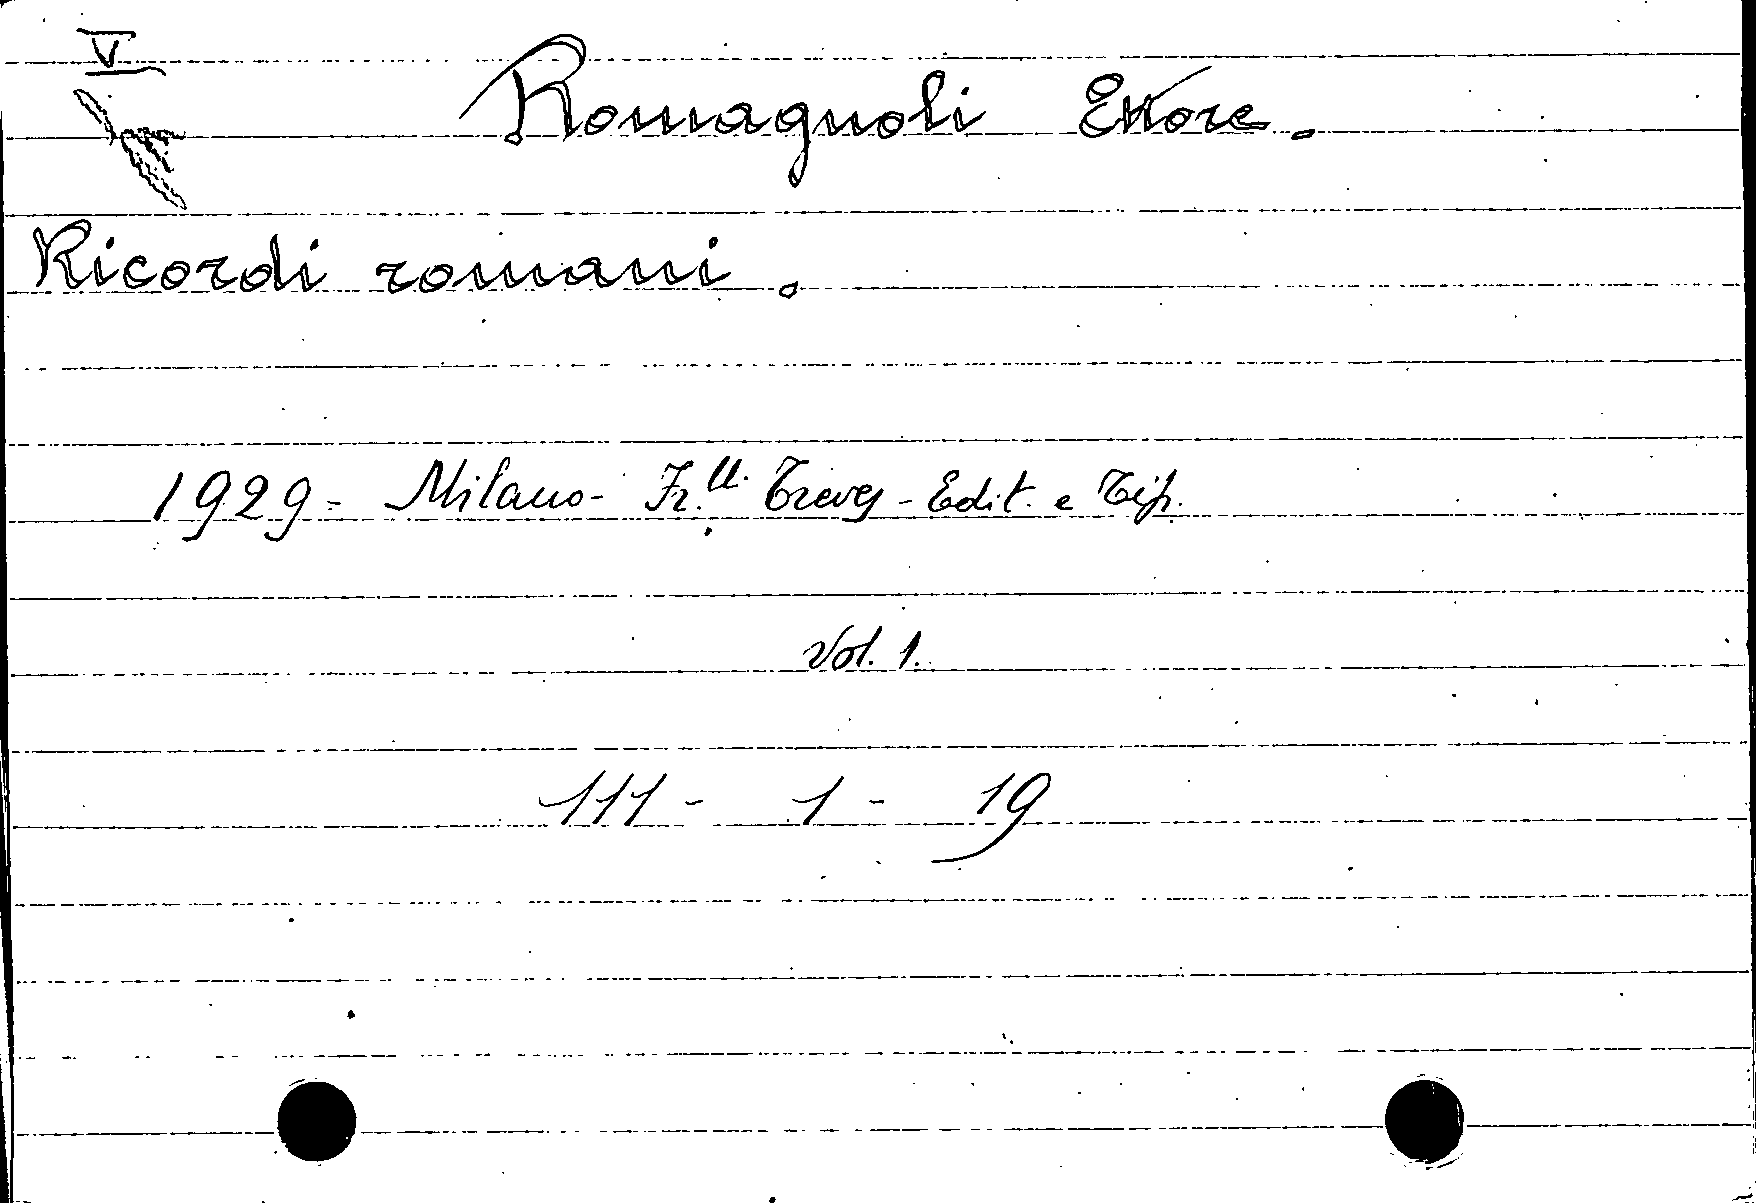 V
Romagnoli Ettore.
Ricordi romani.
1929 - Milano - Fr.lli Treves - Edit. e Tip.
Vol. 1.
111 - 1 - 19